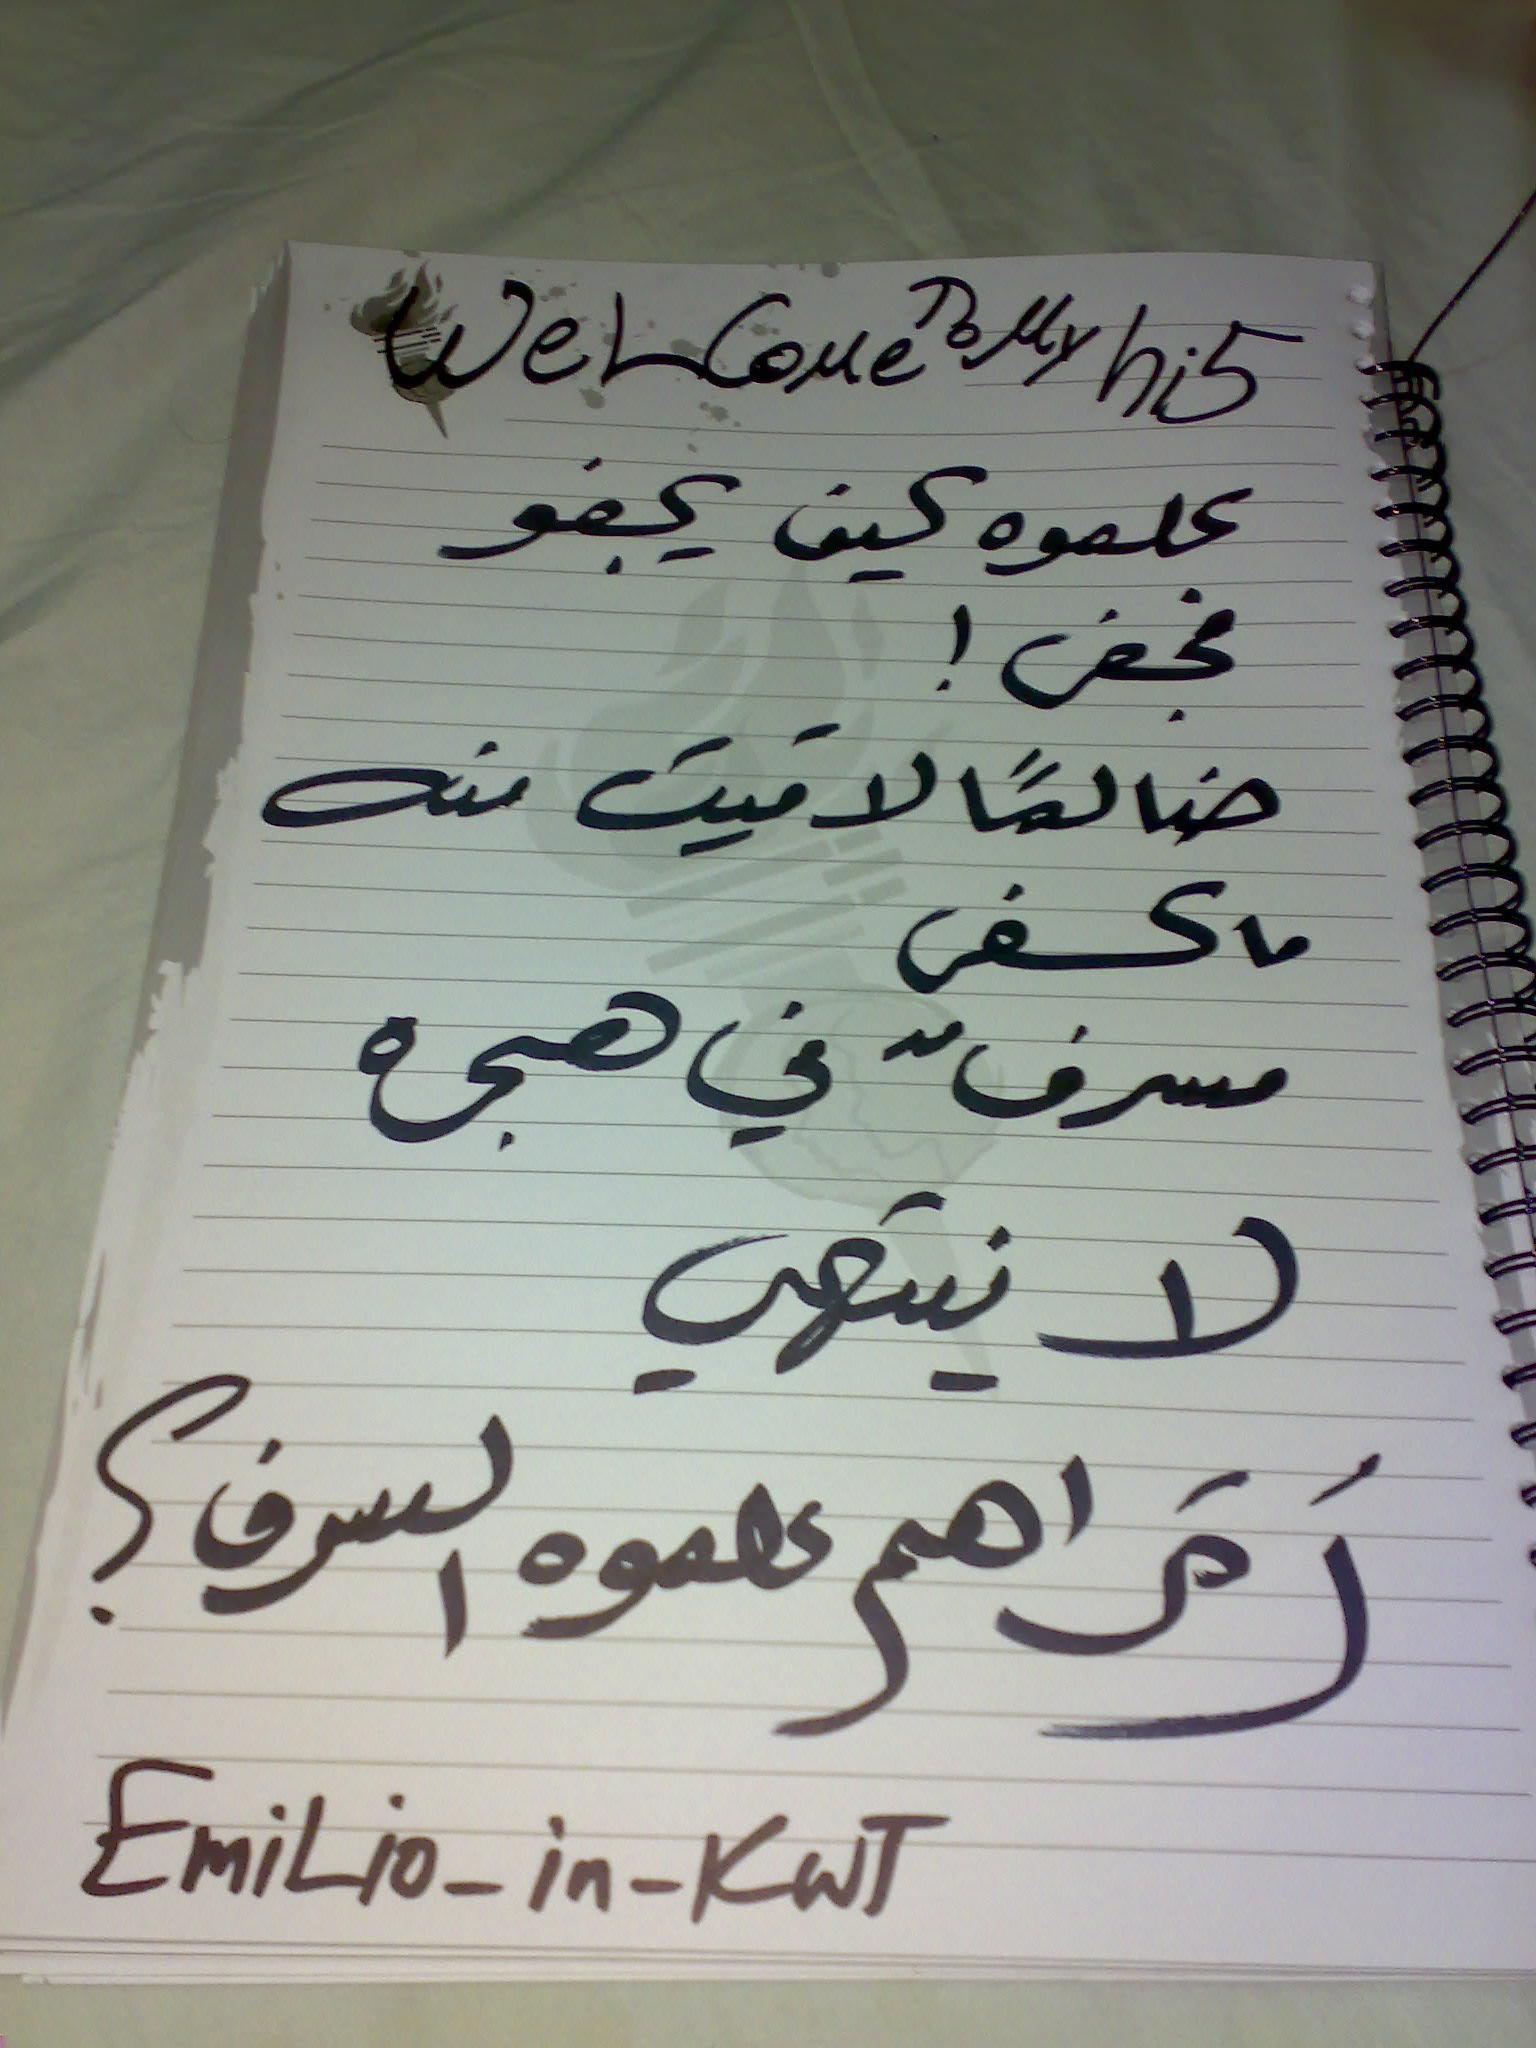 WeLCome To My hi5
علموه كيف يجفو
فجفى !
ظالمًا لاقيت منه
ماكفى
مسرفٌ في هجره
لا ينتهي
أتراهم علموه السرف؟
EmiLio_in_KWT